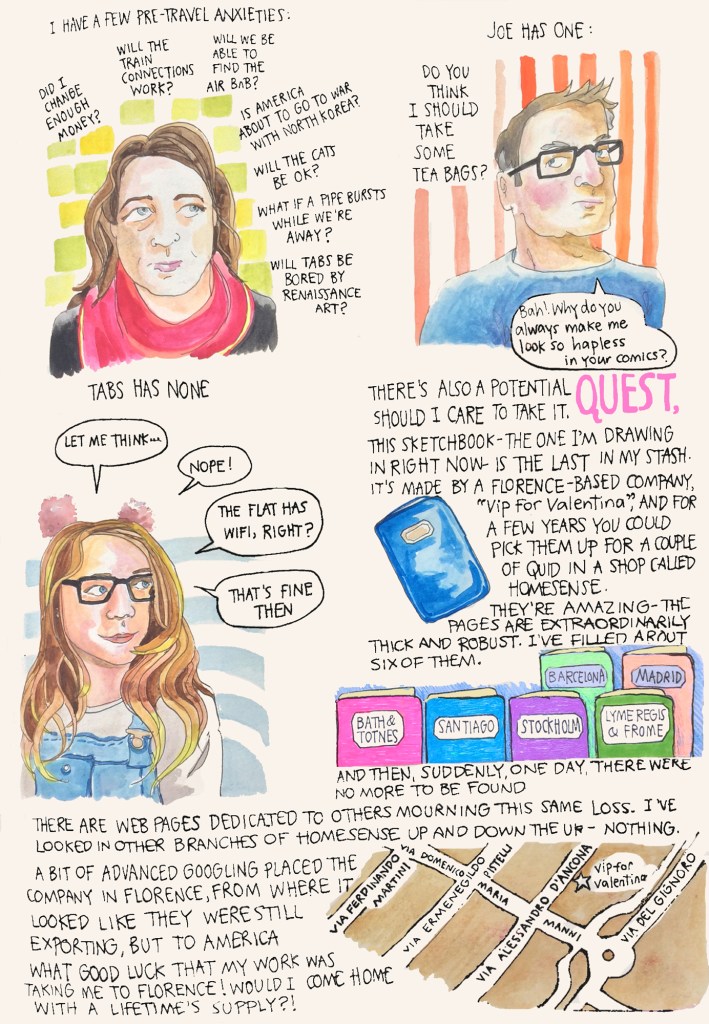 I HAVE A FEW PRE-TRAVEL ANXIETIES:
DID I
CHANGE
ENOUGH
MONEY?
WILL THE
TRAIN
CONNECTIONS
WORK?
WILL WE BE
ABLE TO
FIND THE
AIR BnB?
IS AMERICA
ABOUT TO GO TO WAR
WITH NORTH KOREA?
WILL THE CATS
BE OK?
WHAT IF A PIPE BURSTS
WHILE WE'RE
AWAY?
WILL TABS BE
BORED BY
RENAISSANCE
ART?
JOE HAS ONE:
DO YOU
THINK
I SHOULD
TAKE
SOME
TEA BAGS?
Bah! Why do you
always make me
look so hapless
in your comics?
TABS HAS NONE
LET ME THINK...
NOPE!
THE FLAT HAS
WIFI, RIGHT?
THAT'S FINE
THEN
THERE'S ALSO A POTENTIAL QUEST,
SHOULD I CARE TO TAKE IT.
THIS SKETCHBOOK-THE ONE I'M DRAWING
IN RIGHT NOW- IS THE LAST IN MY STASH.
IT'S MADE BY A FLORENCE-BASED COMPANY,
"Vip for Valentina", AND FOR
A FEW YEARS YOU COULD
PICK THEM UP FOR A COUPLE
OF QUID IN A SHOP CALLED
HOMESENSE.
THEY'RE AMAZING-THE
PAGES ARE EXTRAORDINARILY
THICK AND ROBUST. I'VE FILLED ABOUT
SIX OF THEM.
BARCELONA
MADRID
BATH &
TOTNES
SANTIAGO
STOCKHOLM
LYME REGIS
& FROME
AND THEN, SUDDENLY, ONE DAY, THERE WERE
NO MORE TO BE FOUND
THERE ARE WEB PAGES DEDICATED TO OTHERS MOURNING THIS SAME LOSS. I'VE
LOOKED IN OTHER BRANCHES OF HOMESENSE UP AND DOWN THE UK - NOTHING.
A BIT OF ADVANCED GOOGLING PLACED THE
COMPANY IN FLORENCE, FROM WHERE IT
LOOKED LIKE THEY WERE STILL
EXPORTING, BUT TO AMERICA
WHAT GOOD LUCK THAT MY WORK WAS
TAKING ME TO FLORENCE! WOULD I COME HOME
WITH A LIFETIME'S SUPPLY?!
VIA FERDINANDO
MARTINI
VIA DOMENICO
MARIA
MANNI
VIA ERMENEGILDO
PISTELLI
VIA ALESSANDRO D'ANCONA
vip for
valentina
VIA DEL GIGNORO